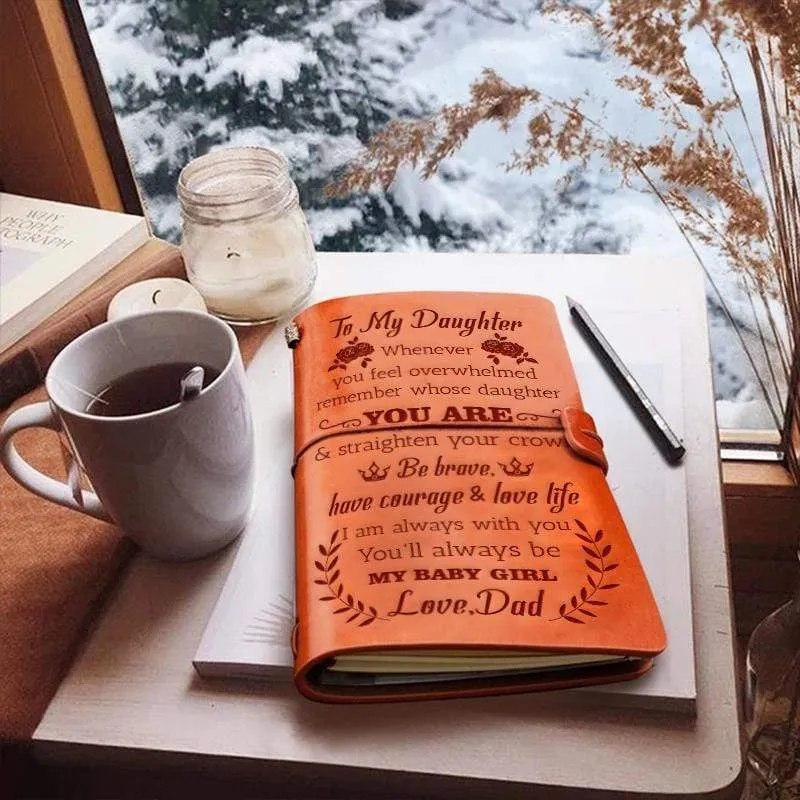 WHY
PEOPLE
PHOTOGRAPH
To My Daughter
Whenever
you feel overwhelmed
remember whose daughter
YOU ARE
& straighten your crow
Be brave,
have courage & love life
I am always with you
You'll always be
MY BABY GIRL
Love, Dad